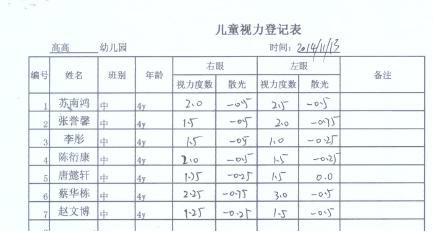 儿童视力登记表
高高 幼儿园 时间: 2014/11/13
编号 姓名 班别 年龄 右眼 左眼 备注
视力度数 散光 视力度数 散光
1 苏南鸿 中 4y 2.0 -0.5 2.5 -0.5
2 张誉馨 中 4y 1.5 -0.5 2.0 -0.75
3 李彤 中 4y 1.5 -0.5 1.0 -0.25
4 陈衍康 中 4y 2.0 -0.5 1.5 -0.25
5 唐懿轩 中 4y 1.25 -0.25 1.5 0.0
6 蔡华栋 中 4y 2.25 -0.75 3.0 -0.5
7 赵文博 中 4y 1.25 -0.25 1.5 -0.5